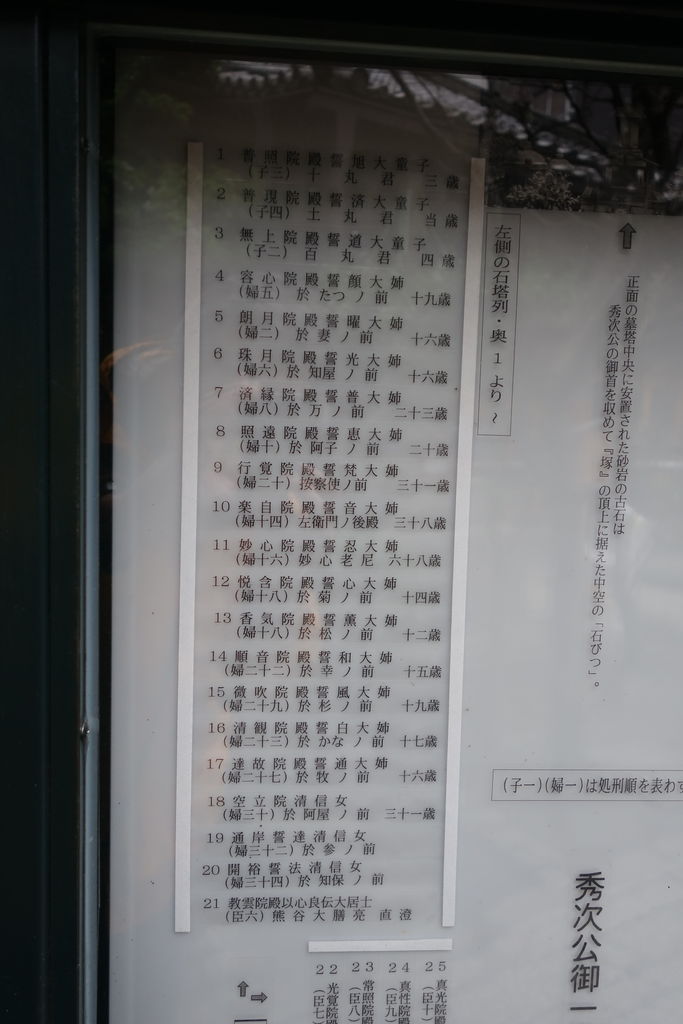 1 普照院殿誓旭大童子
(子三)十丸君 三歳
2 普現院殿誓済大童子
(子四)土丸君 当歳
3 無上院殿誓道大童子
(子二)百丸君 四歳
4 容心院殿誓願大姉
(婦五)於たつノ前 十九歳
5 朗月院殿誓曜大姉
(婦二)於妻ノ前 十六歳
6 珠月院殿誓光大姉
(婦六)於知屋ノ前 十六歳
7 済縁院殿誓普大姉
(婦八)於万ノ前 二十三歳
8 照遠院殿誓恵大姉
(婦十)於阿子ノ前 二十歳
9 行覚院殿誓梵大姉
(婦二十)按察使ノ前 三十一歳
10 楽自院殿誓音大姉
(婦十四)左衛門ノ後殿 三十八歳
11 妙心院殿誓忍大姉
(婦十六)妙心老尼 六十八歳
12 悦含院殿誓心大姉
(婦十八)於菊ノ前 十四歳
13 香気院殿誓薫大姉
(婦十八)於松ノ前 十二歳
14 順音院殿誓和大姉
(婦二十二)於幸ノ前 十五歳
15 微吹院殿誓風大姉
(婦二十九)於杉ノ前 十九歳
16 清観院殿誓白大姉
(婦二十三)於かなノ前 十七歳
17 達故院殿誓通大姉
(婦二十七)於牧ノ前 十六歳
18 空立院清信女
(婦三十)於阿屋ノ前 三十一歳
19 通岸誓達清信女
(婦三十二)於参ノ前
20 開裕誓法清信女
(婦三十四)於知保ノ前
21 教雲院殿以心良伝大居士
(臣六)熊谷大膳亮 直澄
左側の石塔列・奥1より~
↑
正面の墓塔中央に安置された砂岩の古石は
秀次公の御首を収めて『塚』の頂上に据えた中空の「石びつ」。
(子一)(婦一)は処刑順を表わす
秀次公御一
25 真光院殿
(臣十)
24 真性院殿
(臣九)
23 常照院殿
(臣八)
22 光覚院殿
(臣七)
↑→